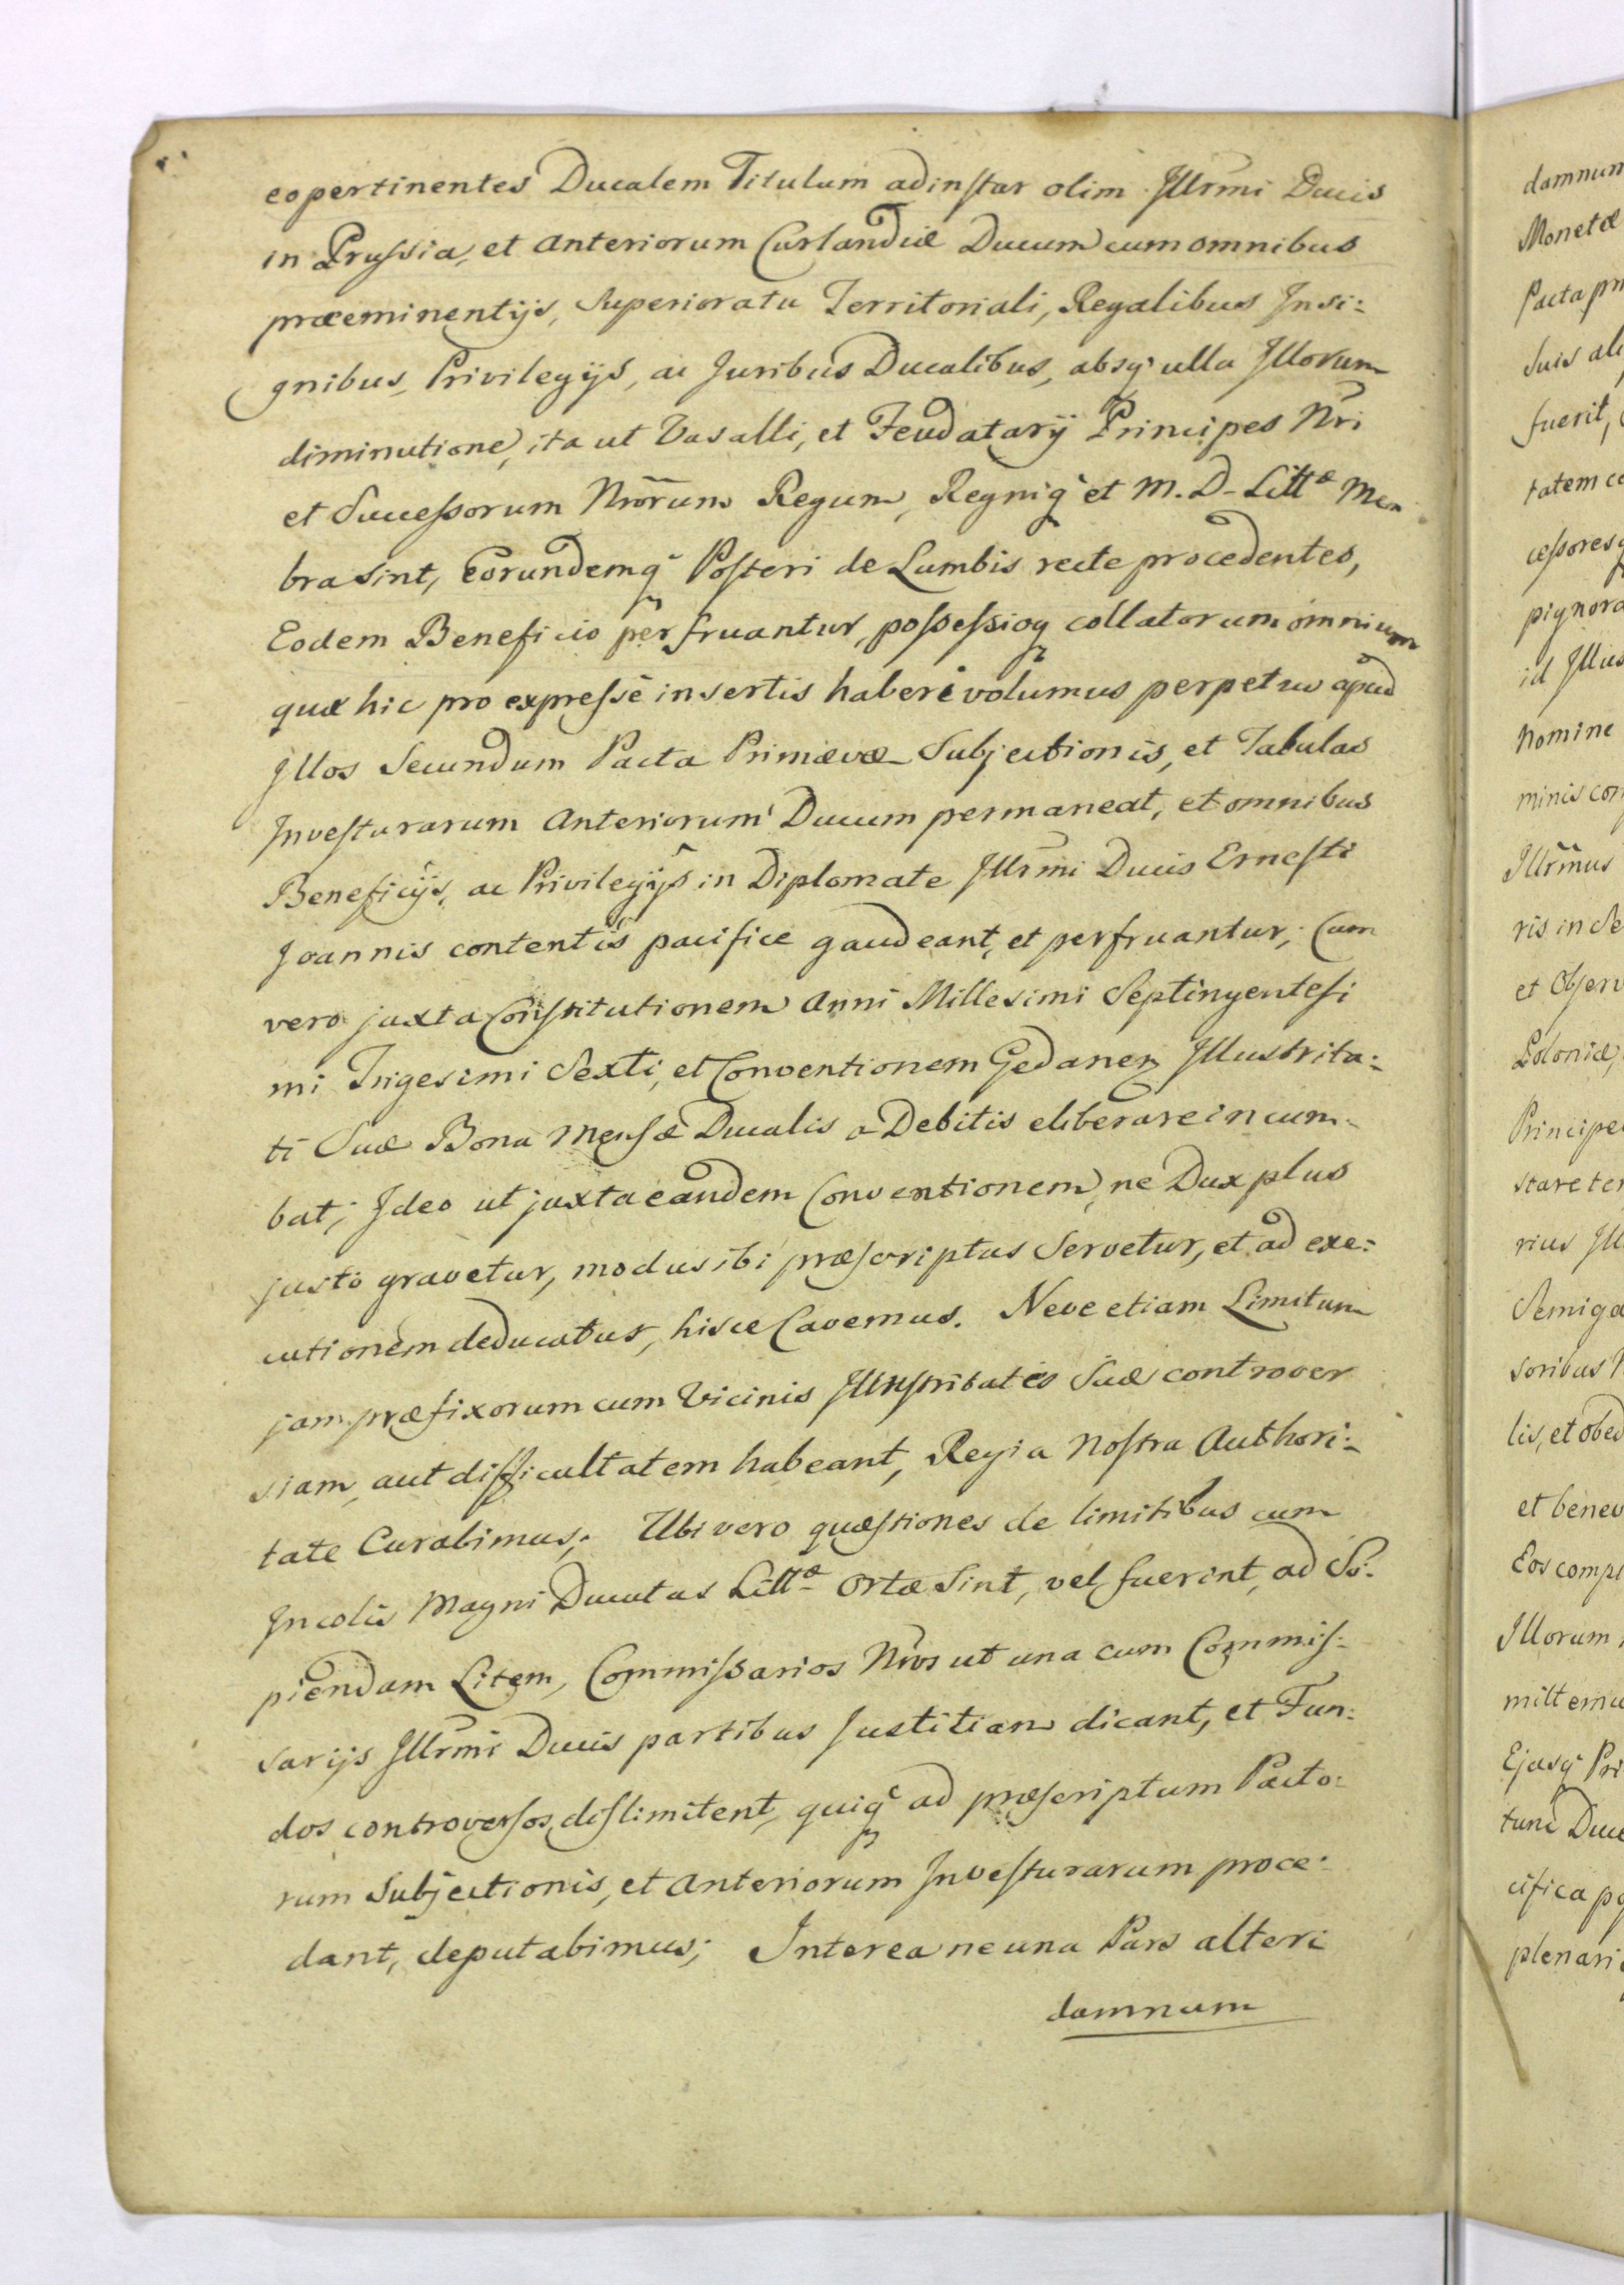 eo pertinentes Ducalem Titulum ad instar olim Jllr̃mi Ducis
in Prussia, et Anteriorum Curlandiæ Ducum cum omnibus
præeminentijs, Superioratu Territoriali, Regalibus Insi:
gnibus, Privilegijs, ac Juribus Ducalibus, absq; ulla Jllorum
diminutione, ita ut Vasalli, et Feudatarij Principes Nr̃i
et Successorum Nr̃orum Regum, Regniq; et M. D. Littæ Mem
bra sint, Eorundemq; Posteri de Lumbis recte procedentes,
Eodem Beneficio perfruantur, possessioq; collatorum omnium
quæ hic pro expresse insertis haberi volumus perpetuo apud
Jllos Secundum Pacta Primævæ Subjectionis, et Tabulas
Investurarum Anteriorum Ducum permaneat, et omnibus
Beneficijs, ac Privilegijs in Diplomate Jllr̃mi Ducis Ernesti
Joannis contentis pacifice gaudeant, et perfruantur; Cum
vero juxta Constitutionem Anni Millesimi Septingentesi
mi Trigesimi Sexti, et Conventionem Gedanen Jllustrita:
ti Suæ Bona Mensæ Ducalis a Debitis eliberare incum-
bat; Ideo ut juxta eandem Conventionem, ne Dux plus
justo gravetur, modus ibi præscriptus Servetur, et ad exe:
cutionem deducatur, hisce Cavemus. Neve etiam Limitum
jam præfixorum cum Vicinis Jllustritatis Suæ controver
siam, aut difficultatem habeant, Regia Nostra Authori:
tate Curabimus; Ubi vero quæstiones de limitibus cum
Jncolis Magni Ducatus Littæ Ortæ Sint, vel fuerint, ad So:
piendam Litem, Commissarios Nr̃os ut una cum Commis:
sarijs Jllr̃mi Ducis partibus Justitiam dicant, et Fun:
dos controversos dislimitent, quiq; ad præscriptum Pacto:
rum Subjectionis, et Anteriorum Investurarum proce:
dant, deputabimus; Interea ne una Pars alteri
damnum
damnum
Monetæ
Pacta
Suis
fuerit,
tatem
id
Nomine
Jllr̃mus
ris in
et
Poloniæ,
stare
rius
lis, et
et
Eos
Jllorum
Ejusq;